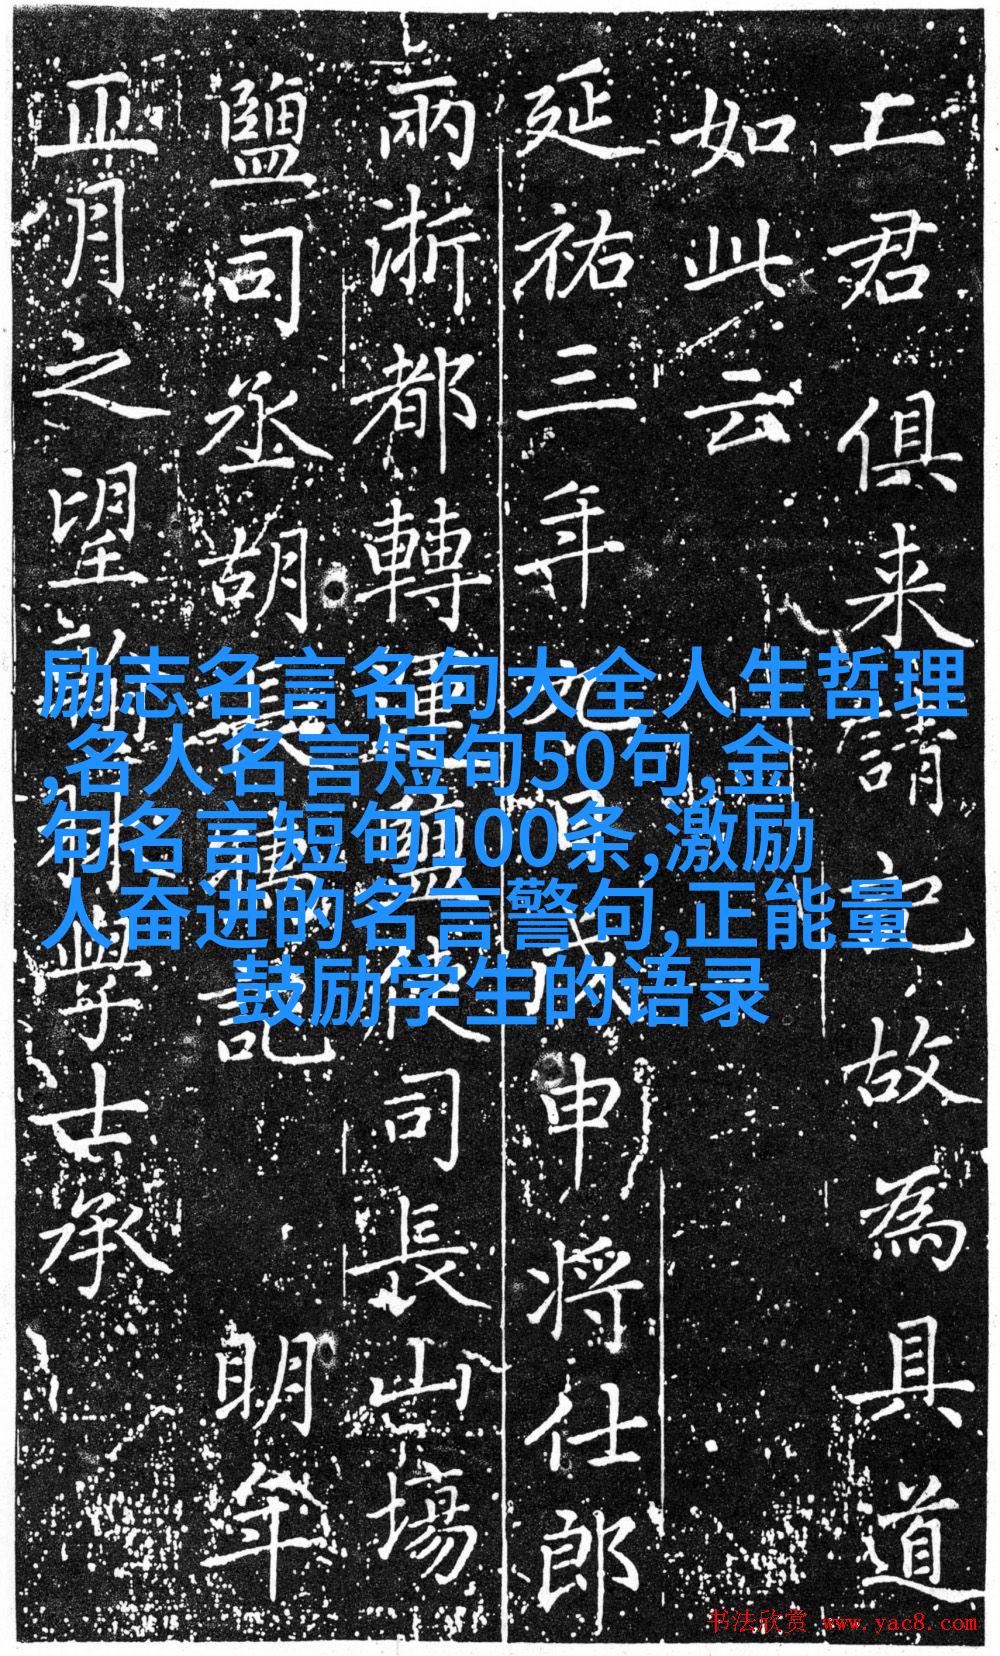 君俱来請記故為具道
如此云
延祐三年 申将仕郎
兩浙都轉運鹽使司長山場
鹽司丞胡長孺記 明年
正月之望前 學士承
励志名言名句大全人生哲理
,名人名言短句50句,金
句名言短句100条,激励
人奋进的名言警句,正能量
鼓励学生的语录
书法欣赏 www.yac8.com